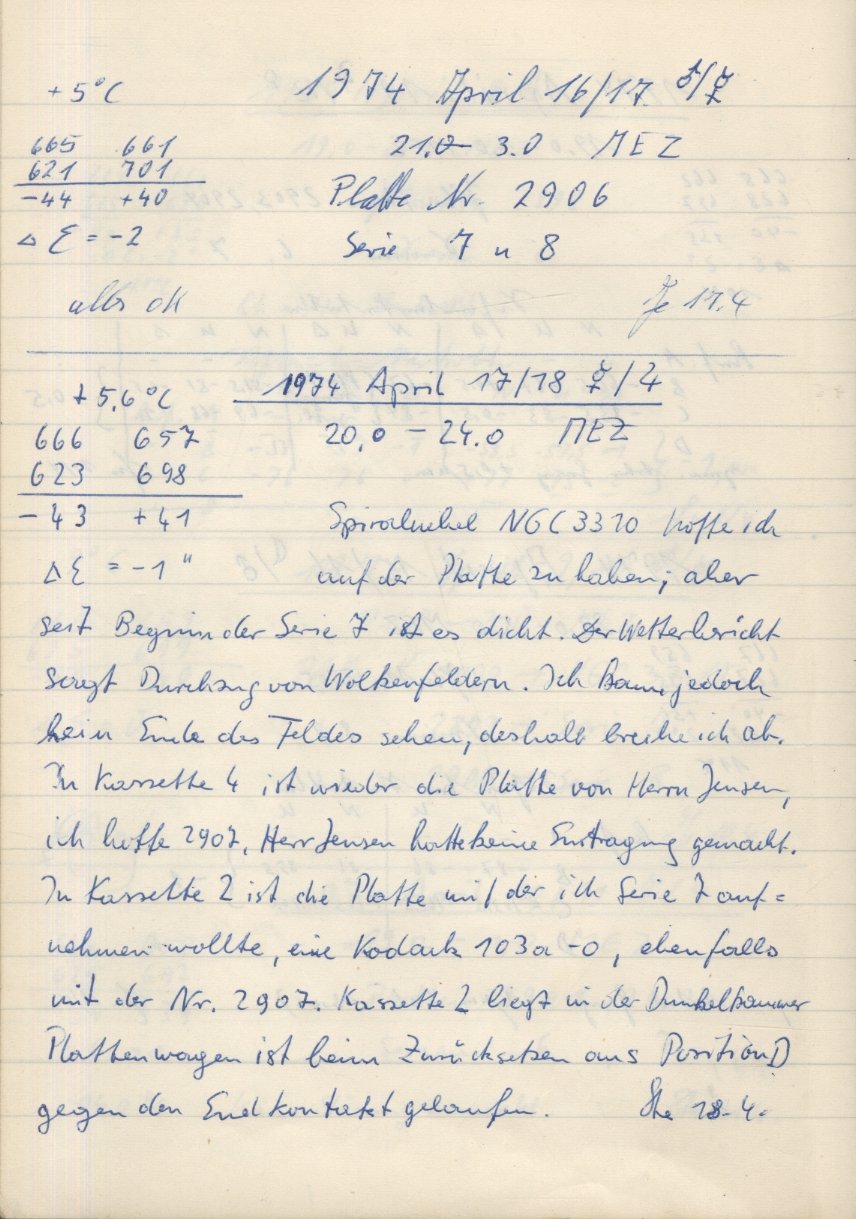 +5°C 1974 April 16/17 ♂/☿
665 661 21.0 - 3.0 MEZ
621 701
-44 +40 Platte Nr. 2906
Δ Σ = -2 Serie 7 u 8
alles OK Je 17.4
+5.6°C 1974 April 17/18 ☿/♃
666 657 20.0 - 24.0 MEZ
623 698
-43 +41 Spiralnebel NGC 3310 hoffe ich
Δ Σ = -1" auf der Platte zu haben; aber
seit Beginn der Serie 7 ist es dicht. Der Wetterbericht
sagt Durchzug von Wolkenfeldern. Ich kann jedoch
kein Ende des Feldes sehen, deshalb breche ich ab.
In Kassette 4 ist wieder die Platte von Herrn Jensen,
ich hoffe 2907, Herr Jensen hatte keine Eintragung gemacht.
In Kassette 2 ist die Platte mit der ich Serie 7 auf=
nehmen wollte, eine Kodak 103a-0, ebenfalls
mit der Nr. 2907. Kassette 2 liegt in der Dunkelkammer
Plattenwagen ist beim Zurücksetzen aus Position D
gegen den Endkontakt gelaufen. 18.4.